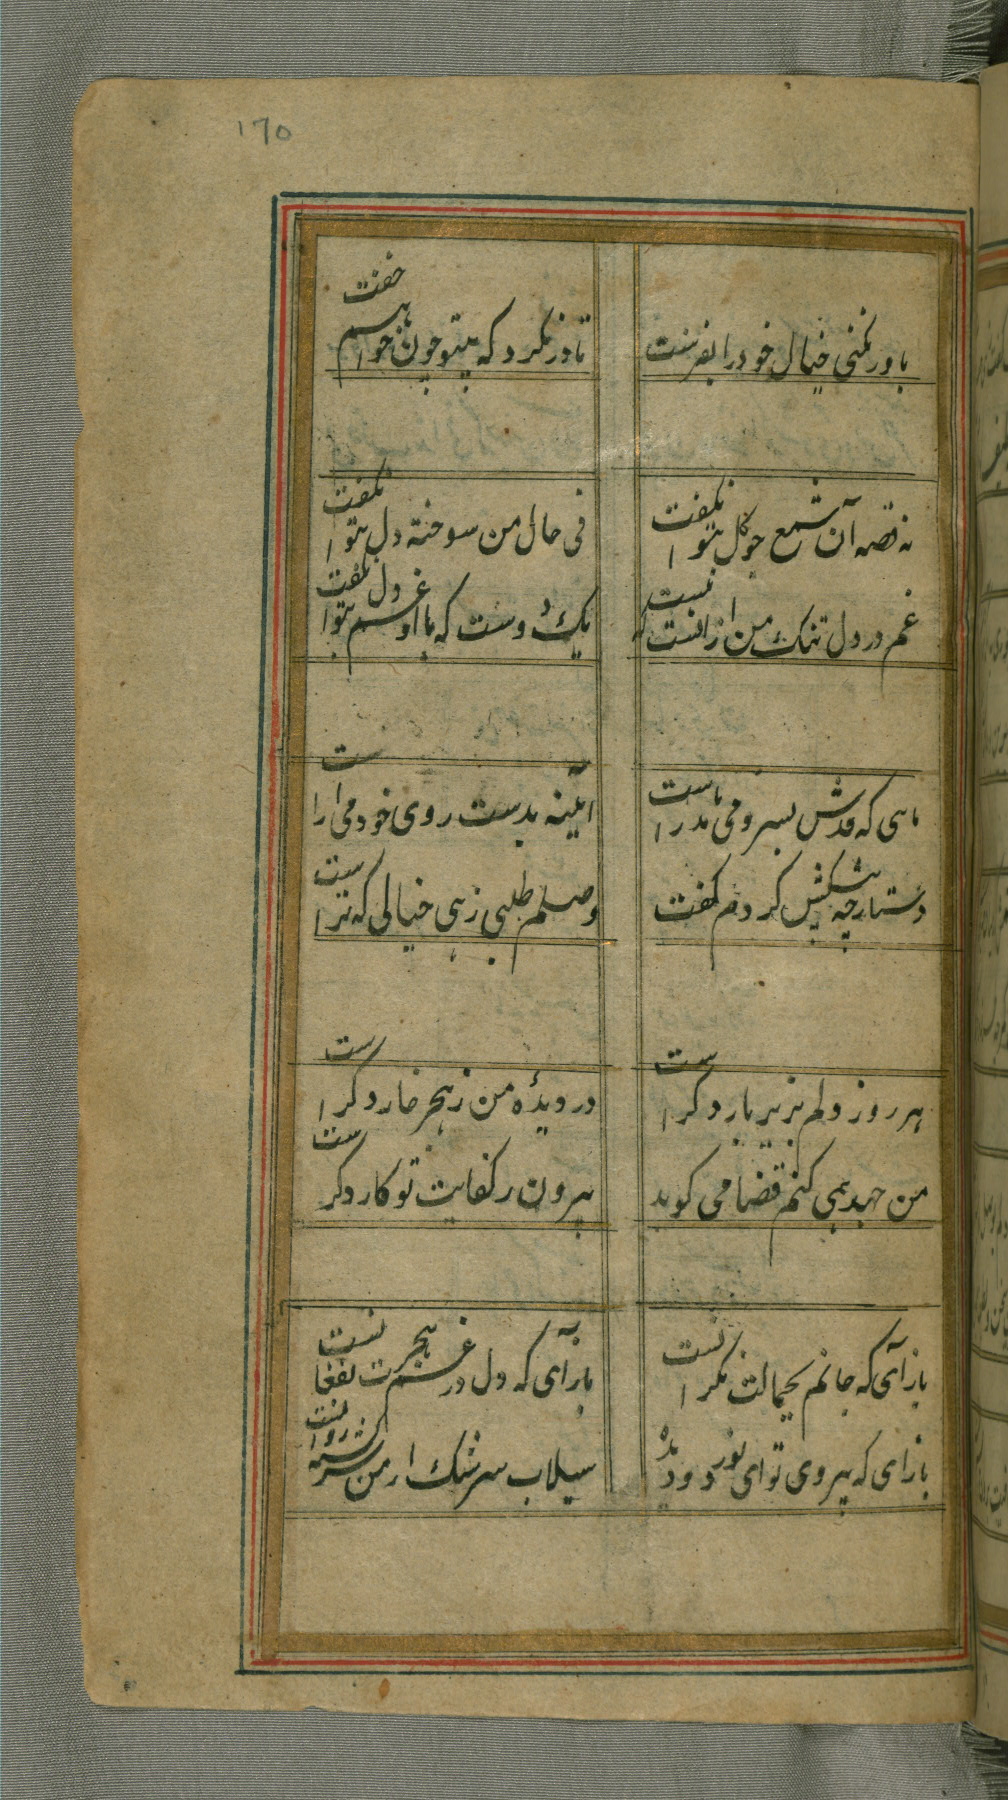 170
باور نکنی خیال خود را بفرست
تا در نکرد که بیتو چون خواهیم خفت
نه قصه آن شمع چو کل بتوان گفت
نی حال من سوخته دل بتوان گفت
غم در دل تنک من از آنست که نیست
یک دوست که با او غم دل بتوان گفت
ماهی که قدش بسرو می ماند راست
آیینه بدست روی خود می آراست
دستارچه پیشکش کردم گفت
وصلم طلبی زهی خیالی که تراست
هر روز دلم بزیر بار دگرست
در دیده من ز هجر خار دگرست
من جهد همی کنم قضا می گوید
بیرون ز کفایت تو کار دگرست
باز آی که جانم بجمالت نگرانست
باز آی که دل در غم هجرت بفغانست
باز آی که بی روی تو ای نور دو دیده
سیلاب سرشک از من سرگشته روانست